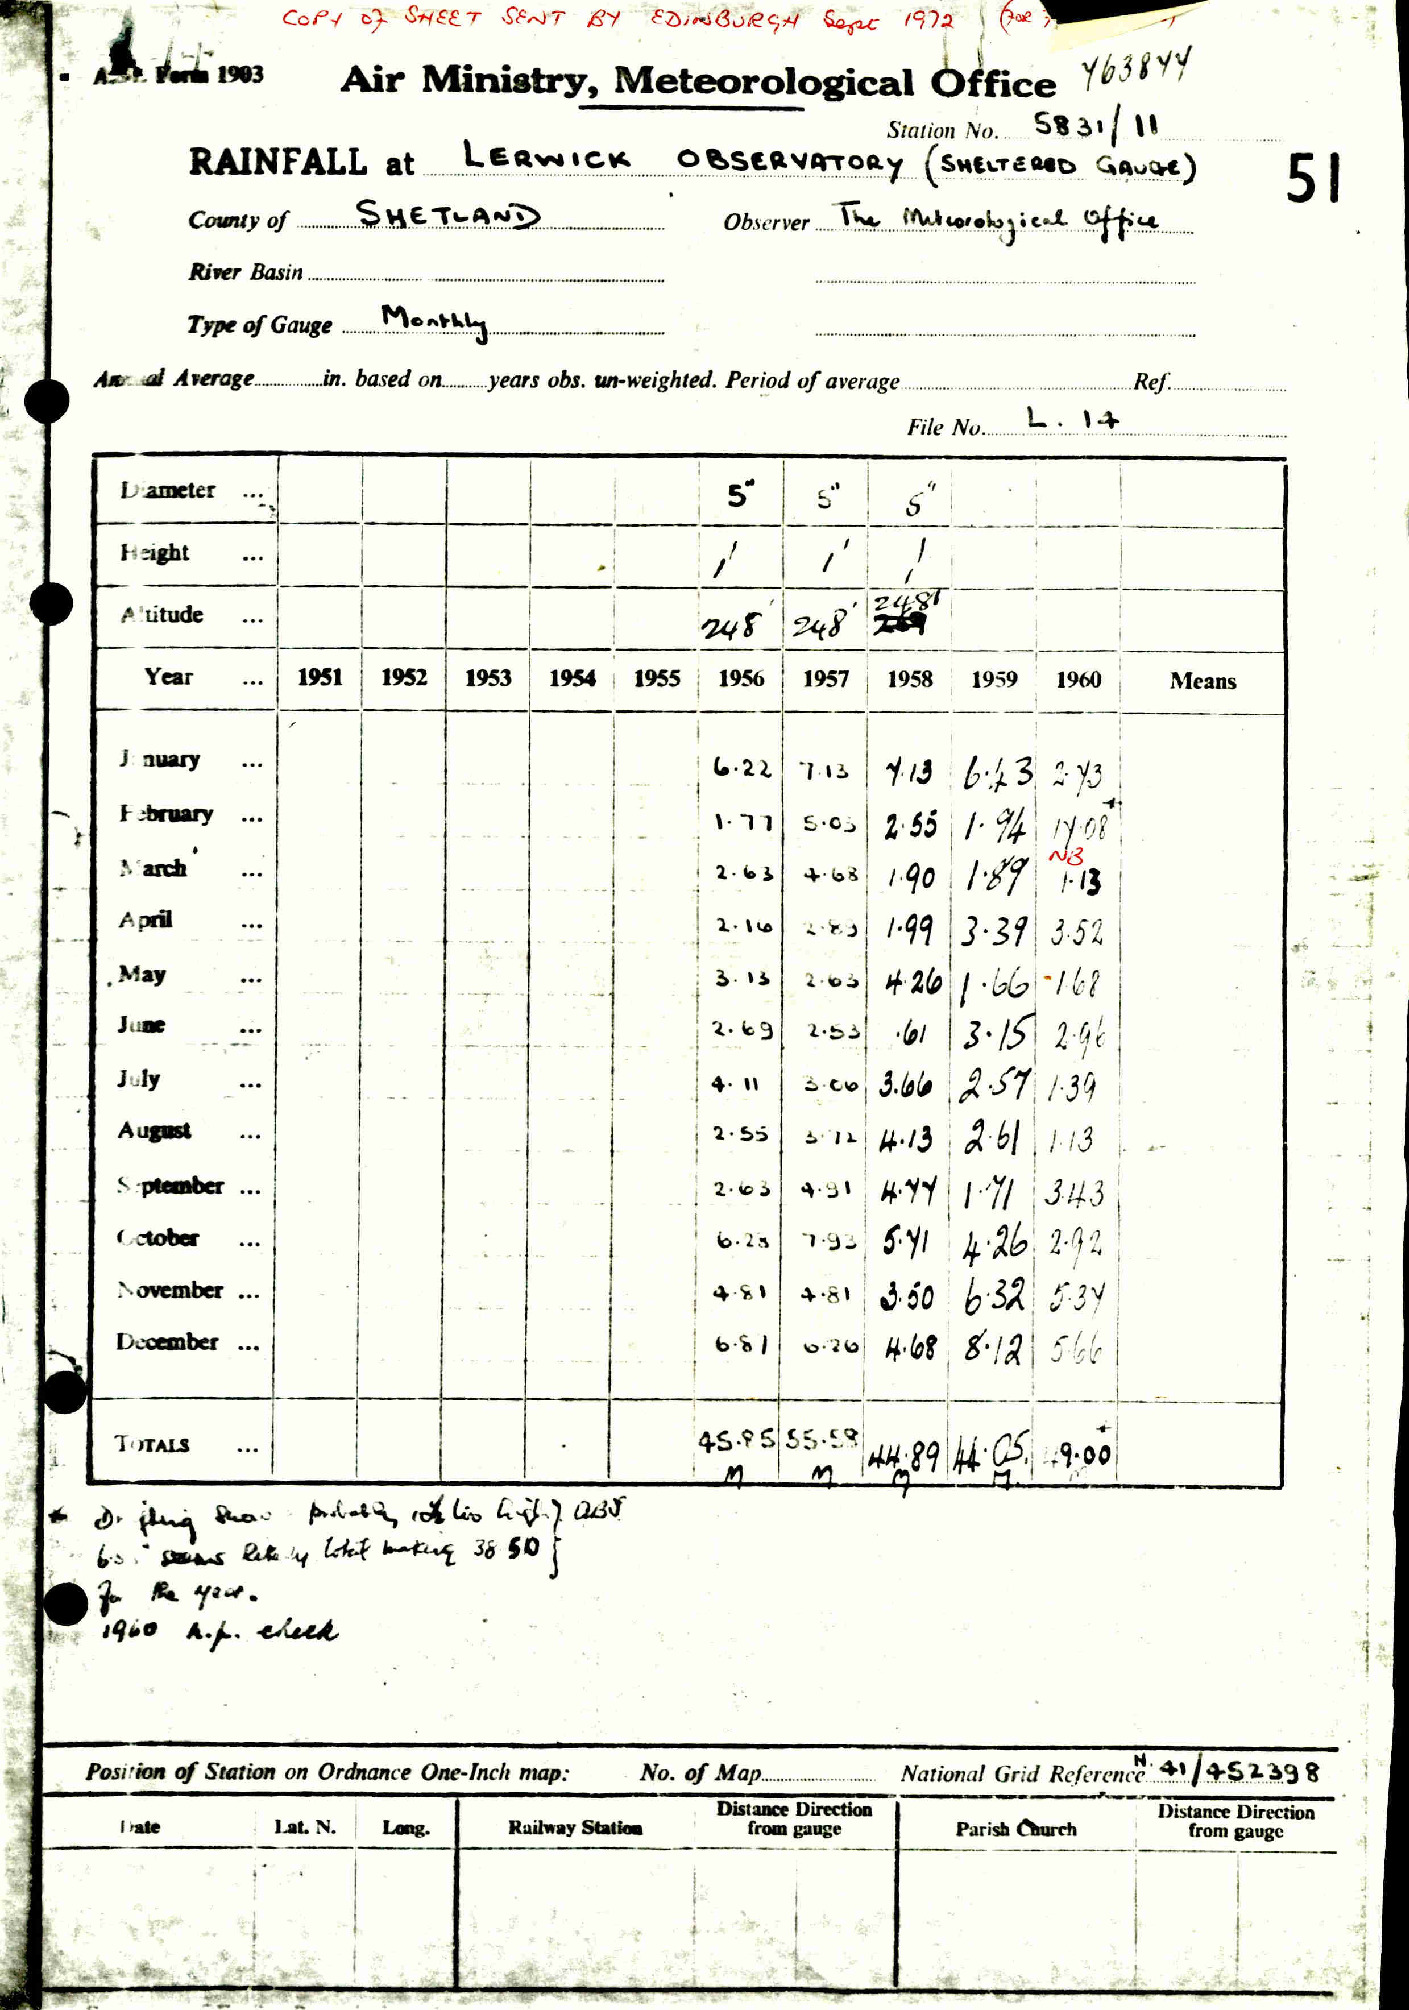 COPY OF SHEET SENT BY EDINBURGH Sept 1972
Form 1903
Air Ministry, Meteorological Office
463844
Station No. 5831/11
RAINFALL at LERWICK OBSERVATORY (SHELTERED GAUGE)
51
County of SHETLAND Observer The Meteorological Office
River Basin
Type of Gauge Monthly
Annual Average in. based on years obs. un-weighted. Period of average Ref.
File No. L. 14
Diameter ... 5" 5" 5"
Height ... 1' 1' 1'
Altitude ... 248' 248' 248'
Year ... 1951 1952 1953 1954 1955 1956 1957 1958 1959 1960 Means
January ... 6.22 7.13 7.13 6.73 2.73
February ... 1.77 5.03 2.55 1.94 14.08+
NB
March ... 2.63 4.68 1.90 1.89 1.13
April ... 2.16 2.89 1.99 3.39 3.52
May ... 3.13 2.63 4.26 1.66 1.68
June ... 2.69 2.53 .61 3.15 2.96
July ... 4.11 3.06 3.66 2.57 1.39
August ... 2.55 3.72 4.13 2.61 1.13
September ... 2.63 4.91 4.44 1.71 3.43
October ... 6.28 7.93 5.41 4.26 2.92
November ... 4.81 4.81 3.50 6.32 5.34
December ... 6.81 6.26 4.68 8.12 5.66
TOTALS ... 45.85 55.58 44.89 44.05 49.00+
M M M M
Drifting Snow probably too high) OBS
seems likely total making 38.50
for the year.
1960 check
Position of Station on Ordnance One-Inch map: No. of Map National Grid Reference N 41/452398
Date Lat. N. Long. Railway Station Distance Direction from gauge Parish Church Distance Direction from gauge